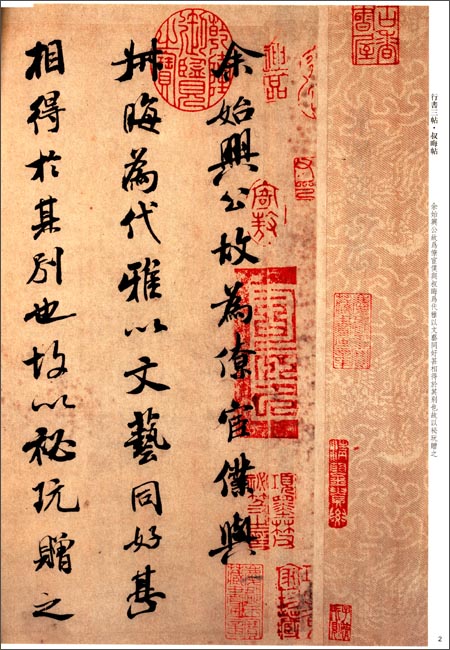 行書三帖·叔晦帖
余始興公故爲僚宦僕與叔晦爲代雅以文藝同好甚相得於其别也故以秘玩贈之
余始興公故為僚宦僕與
叔晦為代雅以文藝同好甚
相得於其别也故以秘玩贈之
乾隆御覽之寶
2